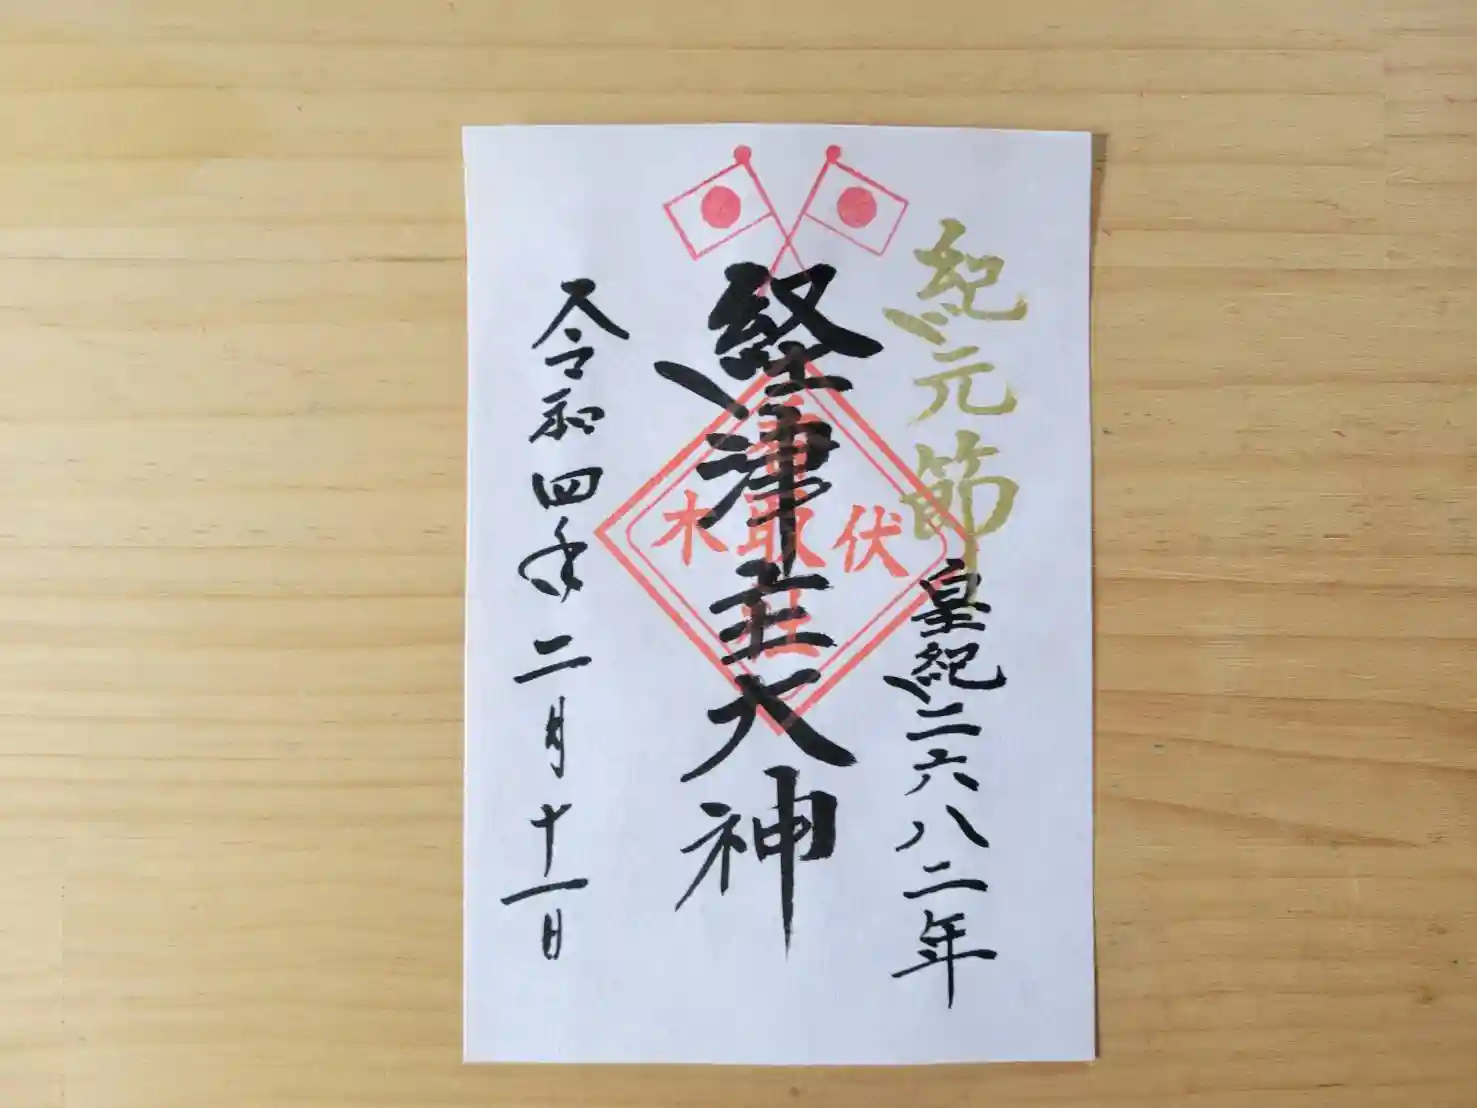 紀元節
皇紀二六八二年
経津主大神
伏取木
令和四年二月十一日